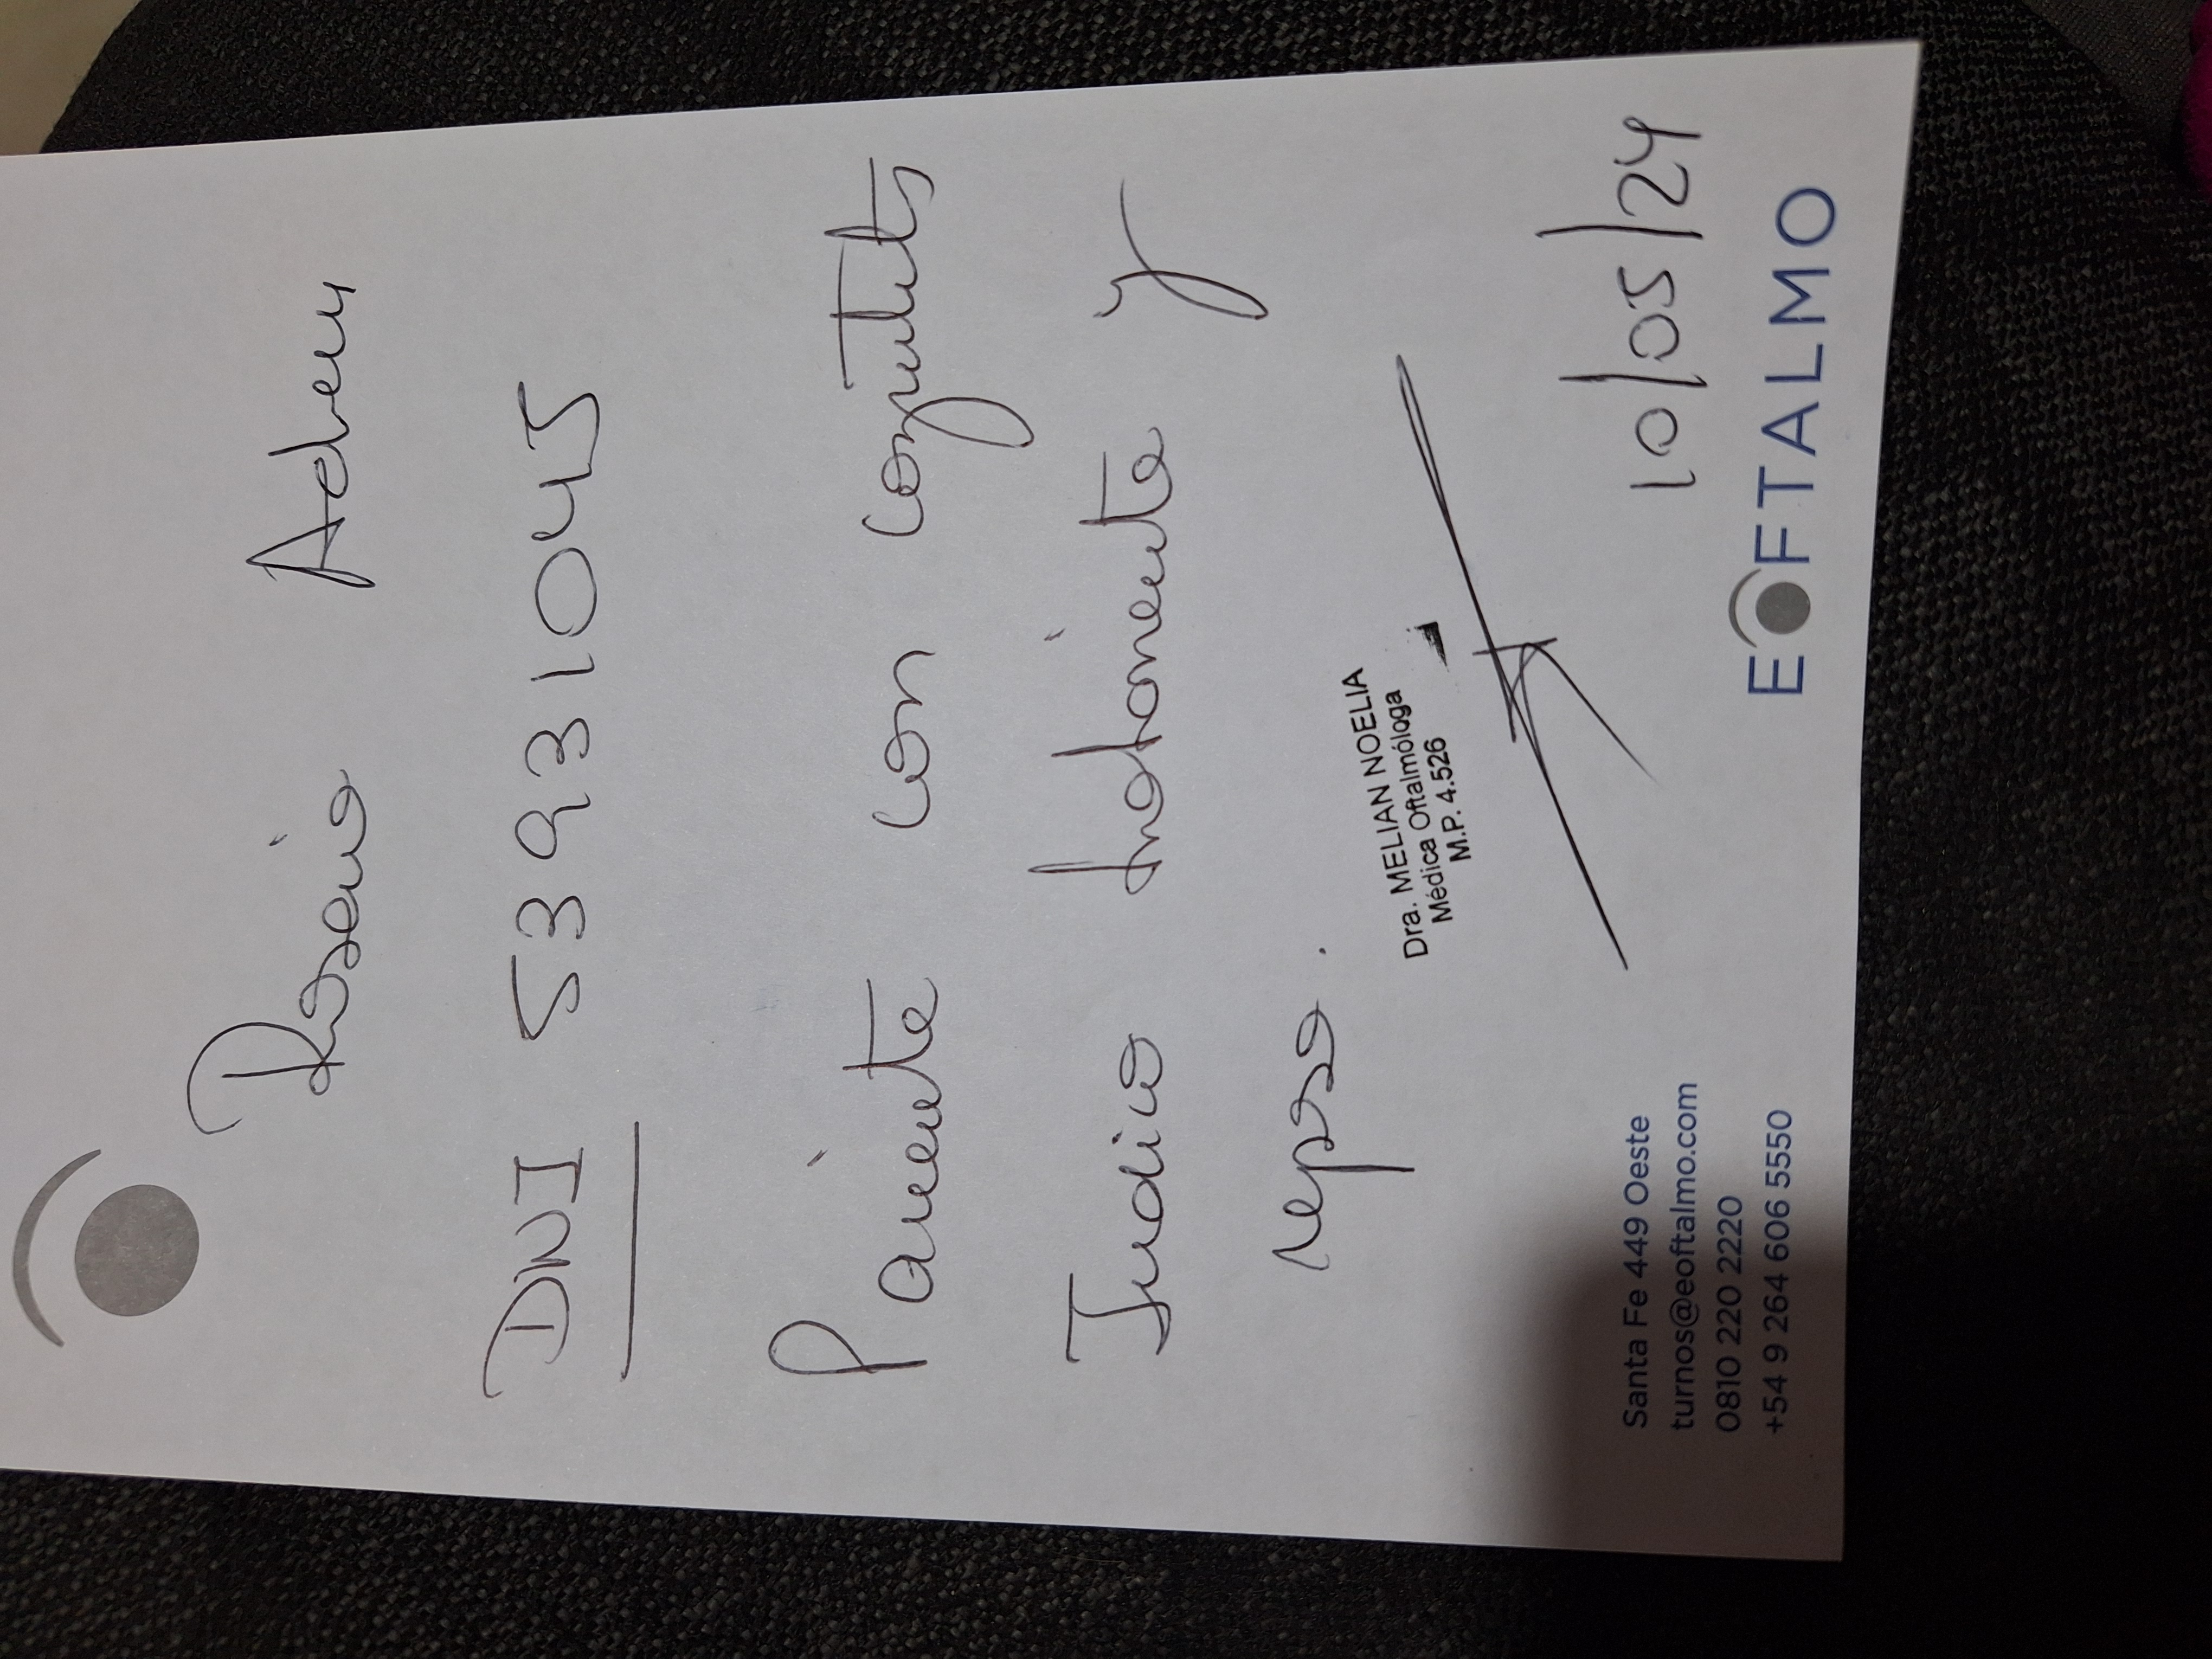 Rosario Adeu
DNI 53931045
Paciente con conjuntivitis
Indico tratamiento y
reposo.
Dra. MELIAN NOELIA
Médica Oftalmóloga
M.P. 4.526
10/05/24
Santa Fe 449 Oeste
turnos@eoftalmo.com
0810 220 2220
+54 9 264 606 5550
EOFTALMO